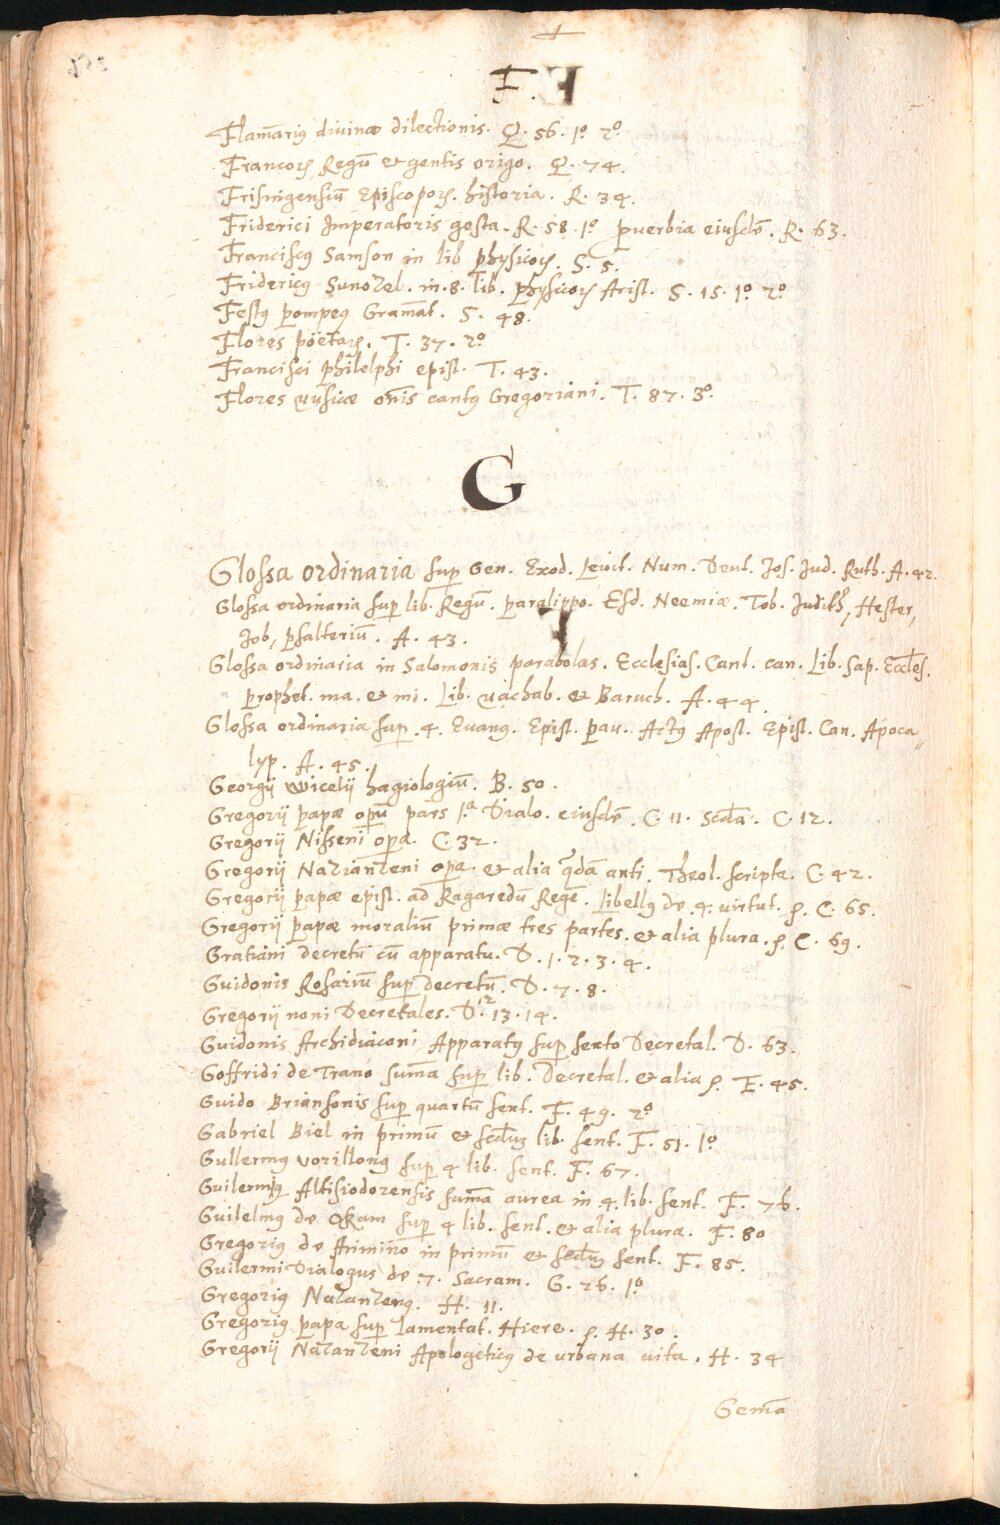 F.
Flam̄ariꝰ diuinæ dilectionis. Q. 56. 1º 2º
Francoꝝ Regū et gentis origo. Q. 74.
Frisingensiū Episcopoꝝ. historia. R. 34.
Friderici Imperatoris gesta. R. 58. 1º ꝓuerbia eiusdē. R. 63.
Franciscꝰ Samson in lib physicoꝝ. S. 5.
Fridericꝰ Sunczel. in. 8. lib. physicoꝝ Arist. S. 15. 1º 2º
Festꝰ pompeꝰ Gram̄at. S. 48.
Flores pöetaꝝ. T. 37. 2º
Francisci philelphi epist. T. 43.
Flores Musicæ om̄is cantꝰ Gregoriani. T. 87. 3º.
G
Glossa ordinaria suꝑ Gen. Exod. Leuit. Num. Deut. Jos. Jud. Ruth. A. 42.
Glossa ordinaria suꝑ lib. Regū. paralippo. Esd. Neemiæ. Tob. Judith, Hester,
Job, psalteriū. A. 43.
Glossa ordinaria in Salomonis parabolas. Ecclesias. Cant. can. Lib. Sap. Eccles.
prophet. ma. et mi. Lib. Machab. et Baruch. A. 44.
Glossa ordinaria suꝑ. 4. Euang. Epist. pau. Actꝰ Apost. Epist. Can. Apoca„
lyp. A. 45.
Georgij wicelij hagiologiū. B. 50.
Gregorij papæ opū pars 1ª Dialo. eiusdē. C. 11. Scd̄a. C. 12.
Gregorij Nisseni oꝑa. C. 32.
Gregorij Nazianzeni oꝑa. et alia q̄dā anti. Theol. scripta. C. 42.
Gregorij papæ epist. ad Ragaredū Regē. Libellꝰ de. 4. virtut. p. C. 65.
Gregorij papæ moraliū primæ tres partes. et alia plura. p. C. 69.
Gratiani decretū cū apparatu. D. 1. 2. 3. 4.
Guidonis Rosariū suꝑ decretū. D. 7. 8.
Gregorij noni Decretales. D. 12 13. 14.
Guidonis Archidiaconi Apparatꝰ suꝑ sexto Decretal. D. 63.
Goffridi de Trano sum̄a suꝑ lib. Decretal. et alia p. E. 45.
Guido Briansonis suꝑ quartū sent. F. 49. 2º
Gabriel Biel in primū et scd̄uꝫ lib. sent. F. 51. 1º
Gullermꝰ vorillonꝰ suꝑ 4 lib. sent. F. 67.
Guilermꝰ Altisiodorensis sum̄a aurea in. 4. lib. sent. F. 76.
Guilelmꝰ de Okam suꝑ 4 lib. sent. et alia plura. F. 80
Gregoriꝰ de Arimino in primū et scd̄uꝫ sent. F. 85.
Guilermi Dialogus de. 7. Sacram. G. 26. 1º
Gregoriꝰ Nazanzenꝰ. H. 11.
Gregoriꝰ papa suꝑ lamentat. Hiere. p. H. 30.
Gregorij Nazanzeni Apologeticꝰ de urbana vita. H. 34
Gem̄a